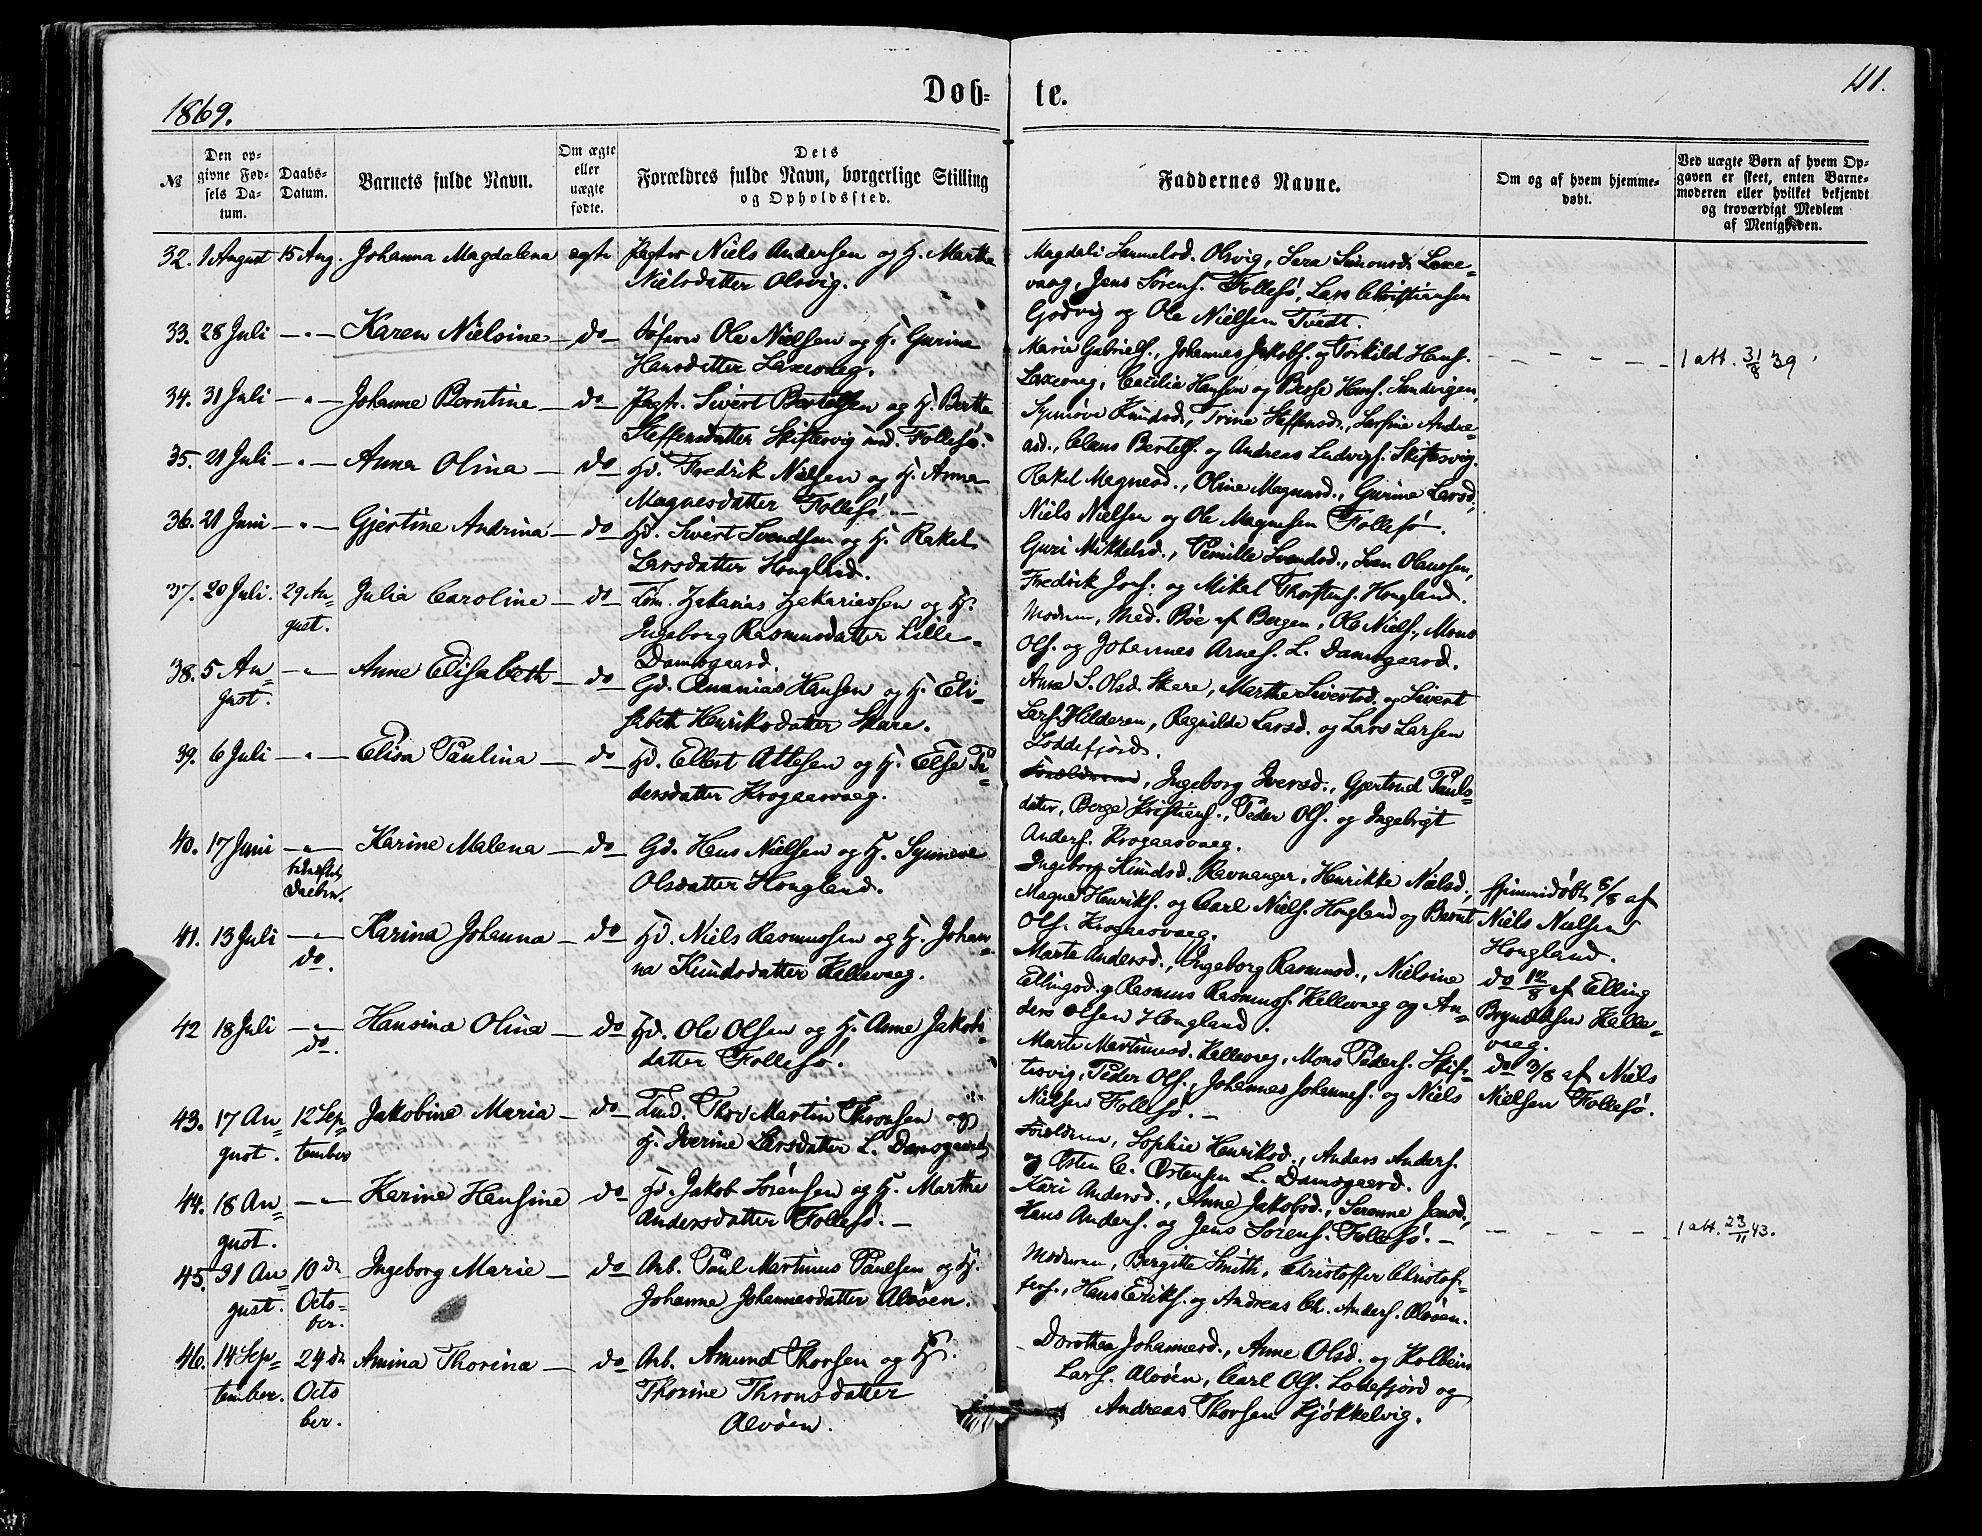 1869.
Døb-
te.
41.
№
Den op-
givne Fød-
sels Da-
tum.
Daabs-
Datum.
Barnets fulde Navn.
Om ægte
eller
uægte
fødte.
Dets
Forældres fulde Navn, borgerlige Stilling
og Opholdssted.
Faddernes Navne.
Om og af hvem hjemme-
døbt.
Ved uægte Børn af hvem Op-
gaven er skeet, enten Barne-
moderen eller hvilket bekjendt
og troværdigt Medlem
af Menigheden.
32. 1 August 15 Aug. Johanna Magdalena ægte Niels Andersen og H. Marthe
Nielsdatter Olsvig.
Magdali Olsvig, Sara Simonsd. Laxe-
vaag, Jens Sørens. Follesø, Lars Christiansen
Godvig og Ole Nielsen Tvedt.
33. 28 Juli -"- Karen Nielsine do Ole Nielsen og H. Gurine
Hansdatter Laxevaag.
Marie Gabriels., Johannes Jakobs. og Torkild Hans.
Laxevaag, Cecilia Hansen og Berge Hans. Sandvigen,
1 att. 31/8 39
34. 31 Juli -"- Johanne Berntine do Sivert Bertelsen og H. Berthe
Steffensdatter Skiftesvig Follesø.
Synnøve Knudsd., Trine Steffensd., Andre-
asd., Claus Bertels. og Andreas Ludvigs. Skiftesvig.
35. 21 Juli -"- Anna Olina do Hd. Fredrik Nielsen og H. Anna
Magnesdatter Follesø.
Rakel Magnesd., Oline Magnesd., Gurine Larsd.,
Niels Nielsen og Ole Magnesen Follesø.
36. 21 Juni -"- Gjertine Andrina do Hd. Sivert Svendsen og H. Rakel
Larsdatter Hougland.
Guri Mikkelsd., Pernille Svendsd., Olausen,
Fredrik Jons. og Mikal Thorstens. Hougland.
37. 20 Juli. 29 Au-
gust. Julia Caroline do Tøm. Zakarias Zakariassen og H.
Ingeborg Rasmusdatter Lille-
Damsgaard.
Moderen, Mad. Bøe af Bergen, Ole Niels., Mons
Ols. og Johannes Arnes. L. Damsgaard.
38. 5 Au-
gust. -"- Anne Elisabeth do Gd. Ananias Hansen og H. Eli-
sabeth Henriksdatter Skare.
Anna S. Olsd. Skare, Marthe Sivertsd. og Sivert
Lars. Hilderen, Ragnilde Larsd. og Lars Larsen
Loddefjord.
39. 6 Juli -"- Elisa Paulina do Hd. Ellert Attesen og H. Else Pe-
dersdatter Krogaasvaag.
Forældrene, Ingeborg Iversd., Gjertrud Pauls-
datter, Berge Kristians., Peder Ols. og Ingebrigt
Anders. Krogaasvaag.
40. 17 Juni -"-
Daaben. Karine Malena do Gd. Hans Nielsen og H. Synneve
Olsdatter Hougland.
Ingeborg Knudsd. Ravnanger, Henrikke Nielsd.,
Magne Henriks. og Carl Niels. Hougland og Bernt
Ols. Krogaasvaag.
Hjemmedøbt 8/8 af
Niels Nielsen
Hougland.
41. 13 Juli -"-
do. Karina Johanna do Hd. Niels Rasmussen og H. Johan-
na Knudsdatter Kellevaag.
Marte Andersd., Ingeborg Rasmusd., Nielsine
Ellingsd. og Rasmus Rasmuss. Kellevaag og An-
ders Olsen Hougland.
do 12/8 af Elling
Brynildsen Kelle-
vaag.
42 18 Juli -"-
do. Hansina Olina do Hd. Ole Olsen og H. Anne Jakobs-
datter Follesø.
Marte Martinusd. Kellevaag, Mons Peders. Skif-
tesvig, Peder Ols., Johannes Johannes. og Niels
Nielsen Follesø.
do 3/8 af Niels
Nielsen Follesø.
43. 17 Au-
gust. 12 Sep-
tember Jakobine Maria do Thor Martin Thronsen og
H. Iverine Larsdatter L. Damsgaard.
Forældrene, Sophie Henriksd., Anders Anders.
og Østen C. Østensen L. Damsgaard.
44. 18 Au-
gust. -"- Karine Hansine do Hd. Jakob Sørensen og H. Marthe
Andersdatter Follesø.
Kari Andersd., Anne Jakobsd., Serenne Jensd.,
Hans Anders. og Jens Sørens. Follesø.
1 att. 23/11 43.
45. 31 Au-
gust. 10 de
Octo-
ber. Ingeborg Marie do Arb. Paul Martinus Paulsen og H.
Johanne Johannesdatter Alvøen.
Moderen, Bergitte Smith, Christoffer Christof-
fers., Hans Eriks. og Andreas Ch. Anders. Alvøen.
46. 14 Sep-
tember. 24 de
Octo
ber. Amina Thorina do Arb. Amund Thorsen og H.
Thorine Thronsdatter
Alvøen.
Dorothea Johannesd., Anne Olsd. og Kolbein
Lars. Alvøen, Carl Ols. Loddefjord og
Andreas Thorsen Kjøkkelvig.